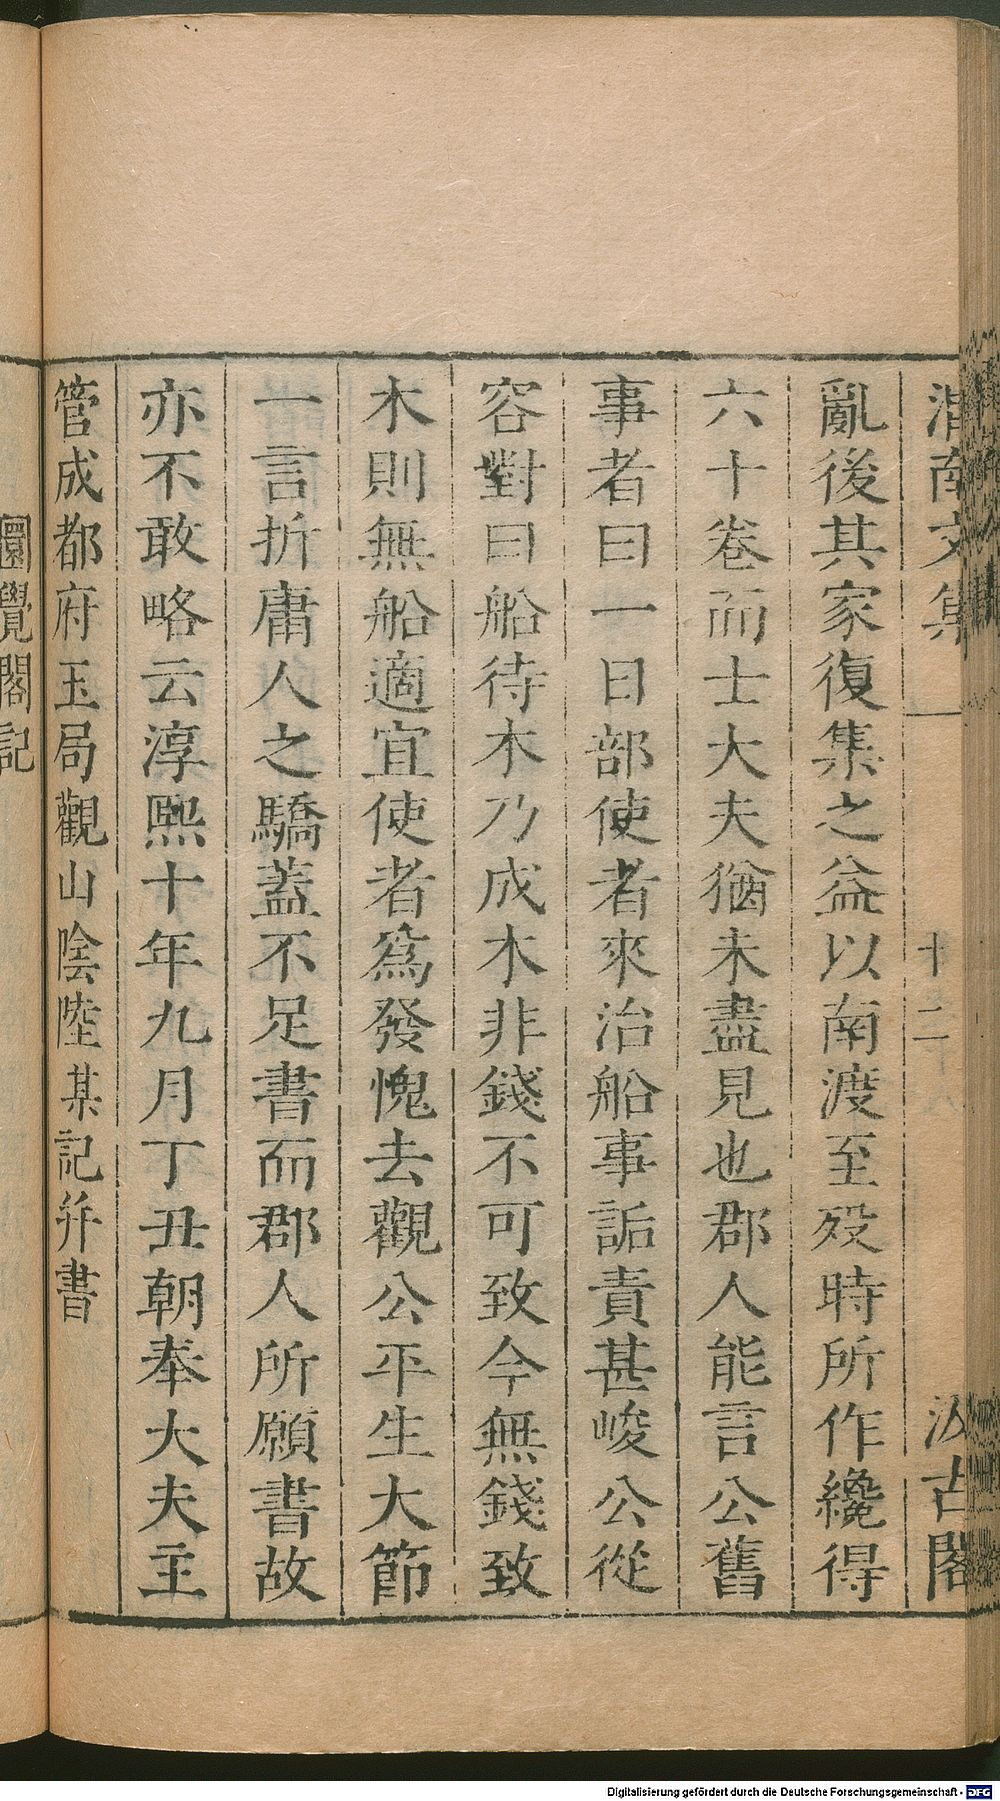 渭南文集 十二 汲古閣
亂後其家復集之益以南渡至歿時所作纔得
六十卷而士大夫猶未盡見也郡人能言公舊
事者曰一日部使者來治船事詬責甚峻公從
容對曰船待木乃成木非錢不可致今無錢致
木則無船適宜使者為發愧去觀公平生大節
一言折庸人之驕蓋不足書而郡人所願書故
亦不敢略云淳熙十年九月丁丑朝奉大夫主
管成都府玉局觀山陰陸某記并書
圜覺閣記
Digitalisierung gefördert durch die Deutsche Forschungsgemeinschaft - DFG